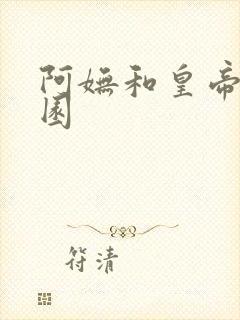 阿嫵和皇帝
園
符清